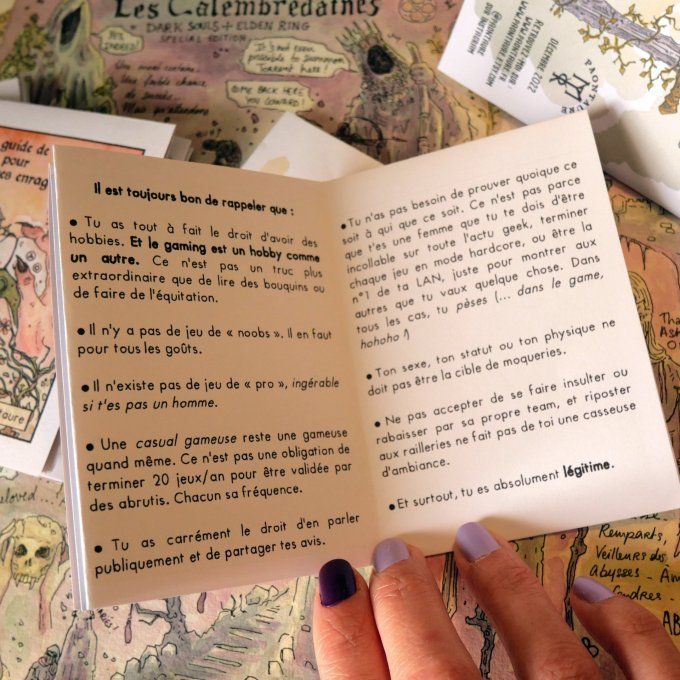 Les Calembredaines
DARK SOULS + ELDEN RING
SPECIAL EDITION
COME BACK HERE
YOU COWARD!
DÉCEMBRE 2022
guide de
pour
es enrag
Il est toujours bon de rappeler que :
● Tu as tout à fait le droit d'avoir des
hobbies. Et le gaming est un hobby comme
un autre. Ce n'est pas un truc plus
extraordinaire que de lire des bouquins ou
de faire de l'équitation.
● Il n'y a pas de jeu de « noobs ». Il en faut
pour tous les goûts.
● Il n'existe pas de jeu de « pro », ingérable
si t'es pas un homme.
● Une casual gameuse reste une gameuse
quand même. Ce n'est pas une obligation de
terminer 20 jeux/an pour être validée par
des abrutis. Chacun sa fréquence.
● Tu as carrément le droit d'en parler
publiquement et de partager tes avis.
● Tu n'as pas besoin de prouver quoique ce
soit à qui que ce soit. Ce n'est pas parce
que t'es une femme que tu te dois d'être
incollable sur toute l'actu geek, terminer
chaque jeu en mode hardcore, ou être la
n°1 de ta LAN, juste pour montrer aux
autres que tu vaux quelque chose. Dans
tous les cas, tu pèses (... dans le game,
hohoho !)
● Ton sexe, ton statut ou ton physique ne
doit pas être la cible de moqueries.
● Ne pas accepter de se faire insulter ou
rabaisser par sa propre team, et riposter
aux railleries ne fait pas de toi une casseuse
d'ambiance.
● Et surtout, tu es absolument légitime.
Remparts,
Veilleurs des
Abysses - Âm
Cendres.